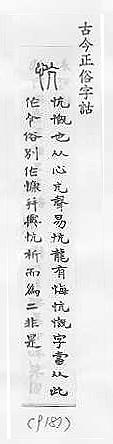 古今正俗字詁
忼
忼慨也从心亢聲易忼龍有悔忼慨字當从此
作今俗別作慷并與忼析而為二非是
(P187)